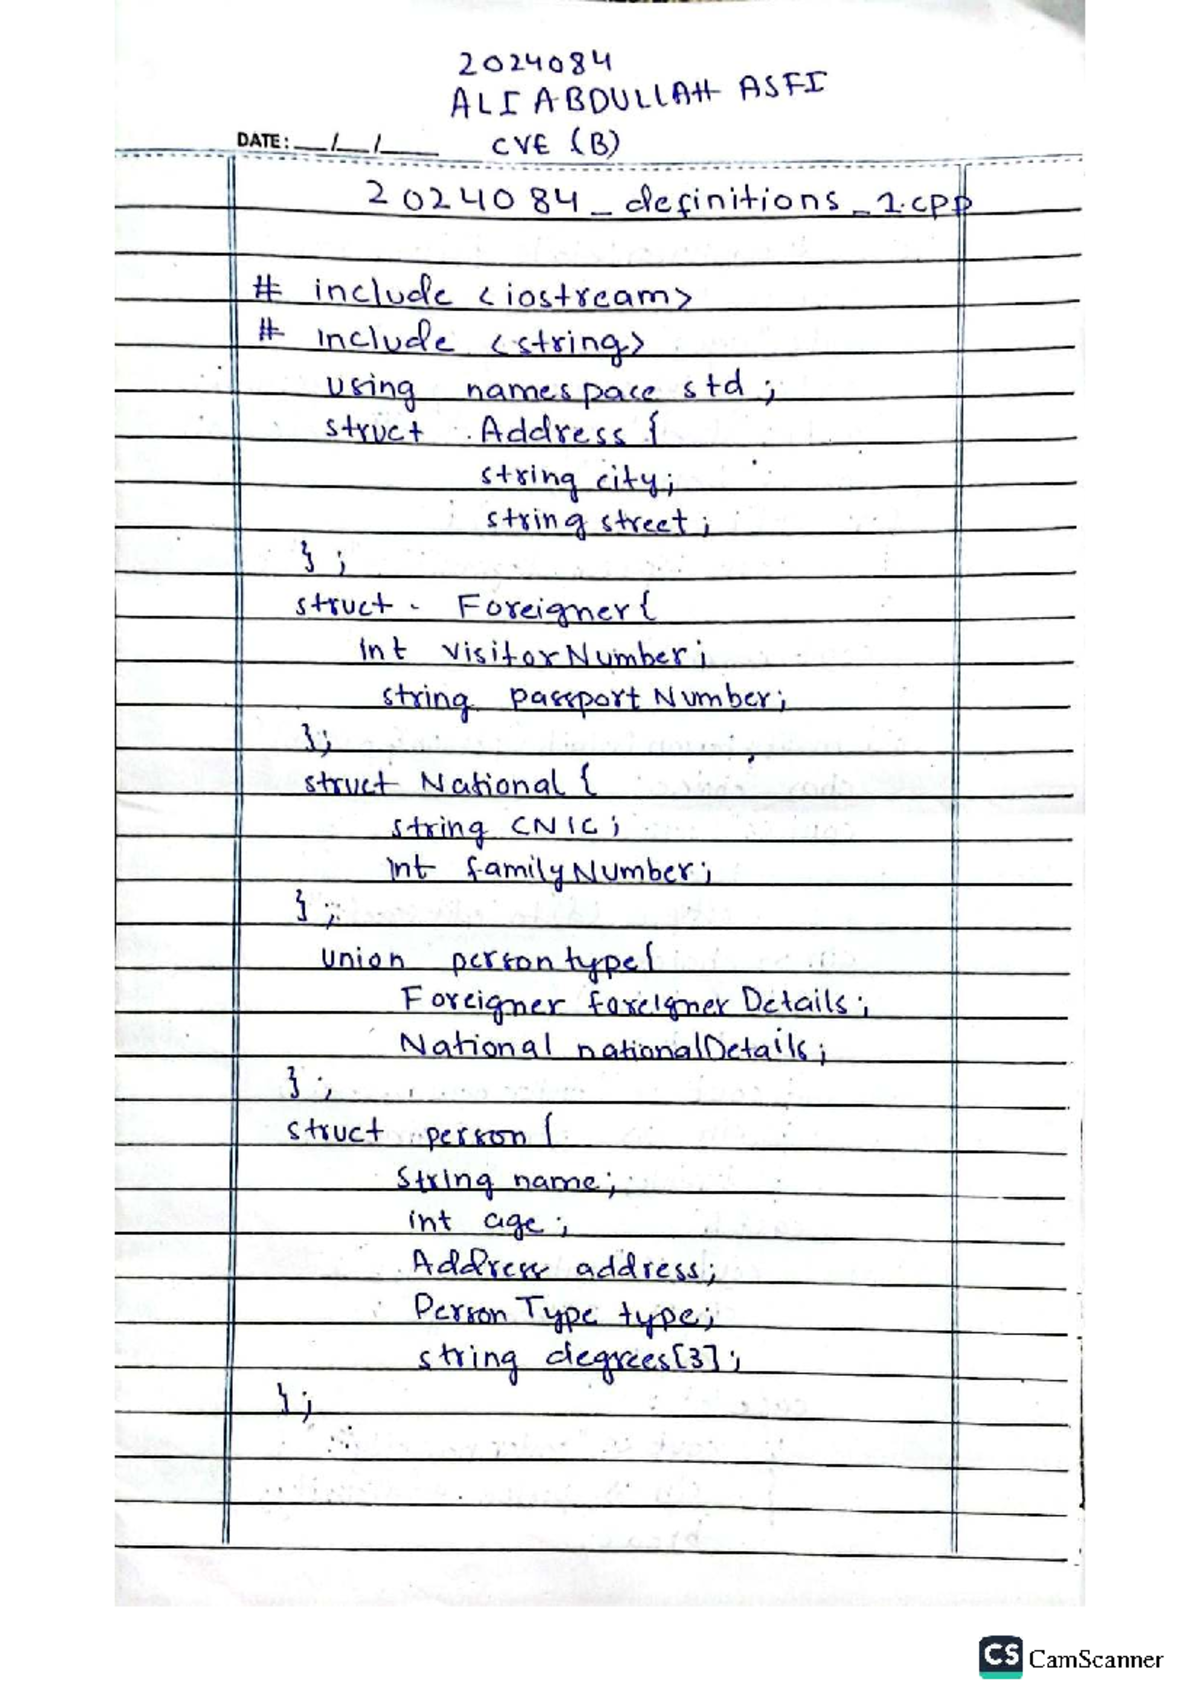 2024084
ALI ABDULLAH ASFI
DATE: __/__/____ CVE (B)
2024084_definitions_1.cpp
# include <iostream>
# include <string>
using namespace std;
struct Address {
string city;
string street;
};
struct Foreigner {
int visitorNumber;
string passportNumber;
};
struct National {
string CNIC;
int familyNumber;
};
union persontype {
Foreigner foreignerDetails;
National nationalDetails;
};
struct person {
string name;
int age;
Address address;
PersonType type;
string degrees[3];
};
CS CamScanner